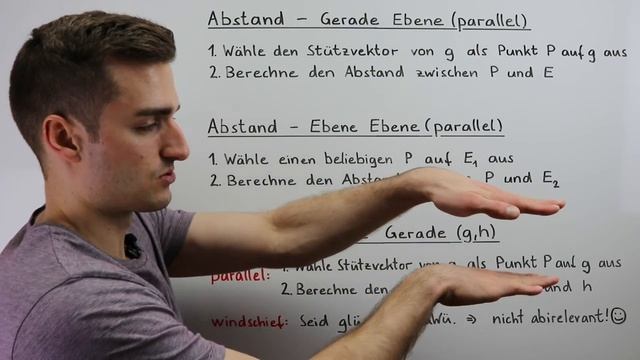 Abstand – Gerade Ebene (parallel)
1. Wähle den Stützvektor von g als Punkt P auf g aus
2. Berechne den Abstand zwischen P und E
Abstand – Ebene Ebene (parallel)
1. Wähle einen beliebigen P auf E₁ aus
2. Berechne den P und E₂
Gerade (g,h)
parallel: 1. Wähle Stützvektor von g als Punkt P auf g aus
2. Berechne den und h
windschief: Seid ⇒ nicht abirelevant!☺